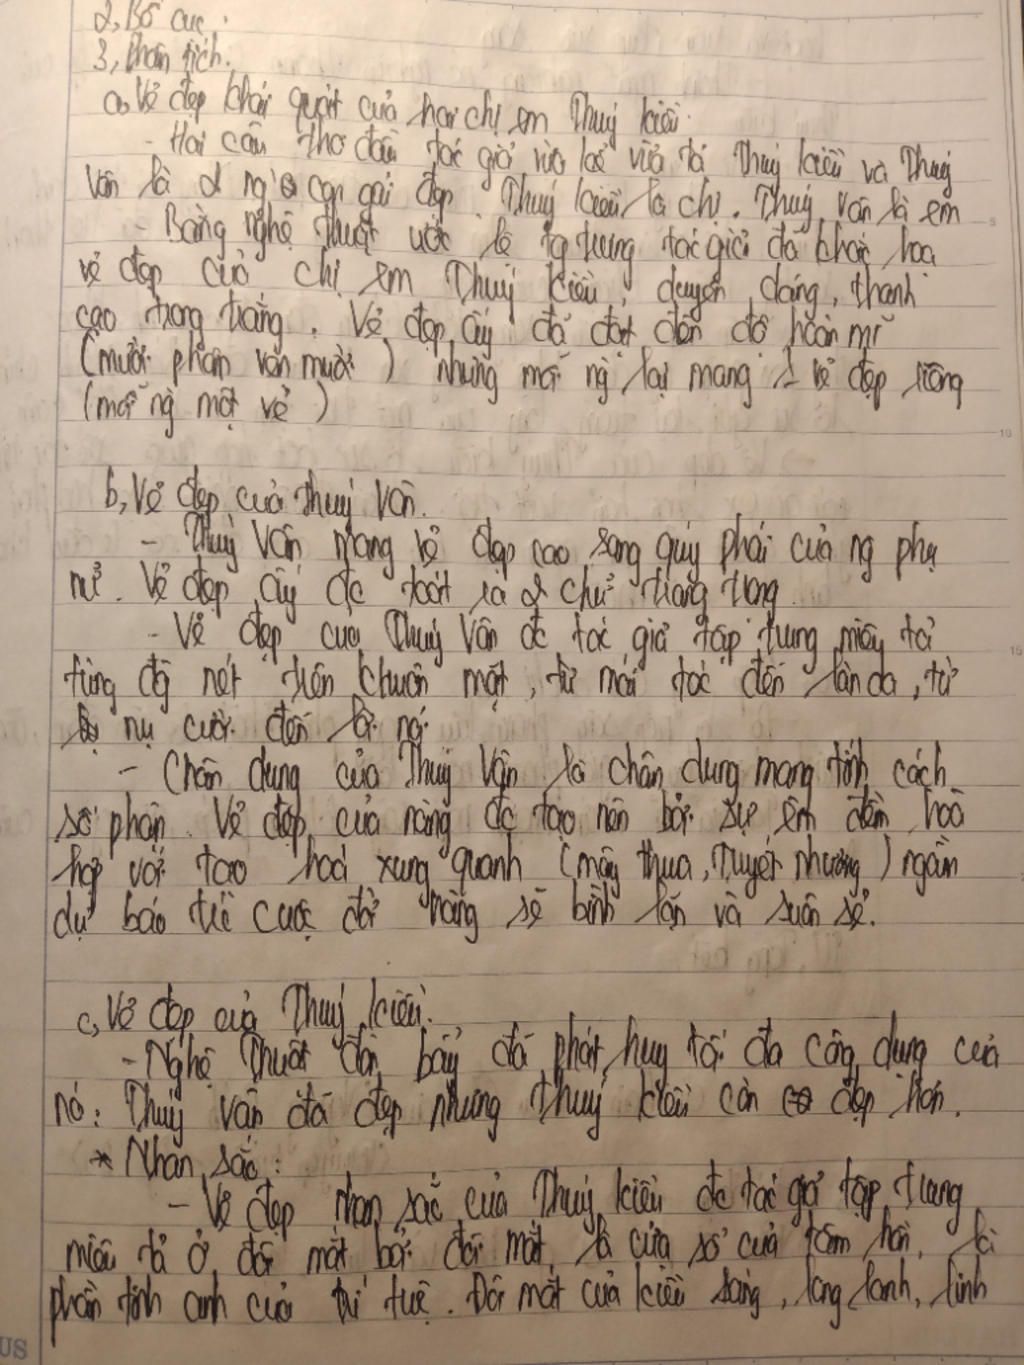 2, Bố cục.
3, Phân tích.
a, Vẻ đẹp khái quát của hai chị em Thuý Kiều.
- Hai câu thơ đầu tác giả vừa kể vừa tả Thuý Kiều và Thuý
Vân là 2 ng con gái đẹp. Thuý Kiều là chị. Thuý Vân là em
- Bằng nghệ thuật ước lệ tg trưng tác giả đã khắc hoạ
vẻ đẹp của chị em Thuý Kiều, duyên dáng, thanh
cao trong trắng. Vẻ đẹp ấy đã đạt đến độ hoàn mĩ
(mười phân vẹn mười) nhưng mỗi ng lại mang 1 vẻ đẹp riêng
(mỗi ng một vẻ)
b, Vẻ đẹp của Thuý Vân.
- Thuý Vân mang vẻ đẹp cao sang quý phái của ng phụ
nữ. Vẻ đẹp ấy đc toát ra 2 chữ trang trọng
- Vẻ đẹp của Thuý Vân đc tác giả tập trung miêu tả
từng đg nét trên khuôn mặt, từ mái tóc đến làn da, từ
nụ cười đến lời nói
- Chân dung của Thuý Vân là chân dung mang tính cách
số phận. Vẻ đẹp của nàng đc tạo nên bởi sự êm đềm hoà
hợp với tạo hoá xung quanh (mây thua, tuyết nhường) ngầm
dự báo về cuộc đời nàng sẽ bình lặn và suôn sẻ.
c, Vẻ đẹp của Thuý Kiều.
- Nghệ thuật đòn bẩy đã phát huy tối đa công dụng của
nó: Thuý Vân đã đẹp nhưng Thuý Kiều còn đẹp hơn.
* Nhan sắc:
- Vẻ đẹp nhan sắc của Thuý Kiều đc tác giả tập trung
miêu tả ở đôi mắt bởi đôi mắt là cửa sổ của tâm hồn, là
phần tinh anh của trí tuệ. Đôi mắt của Kiều sáng, long lanh, linh
US